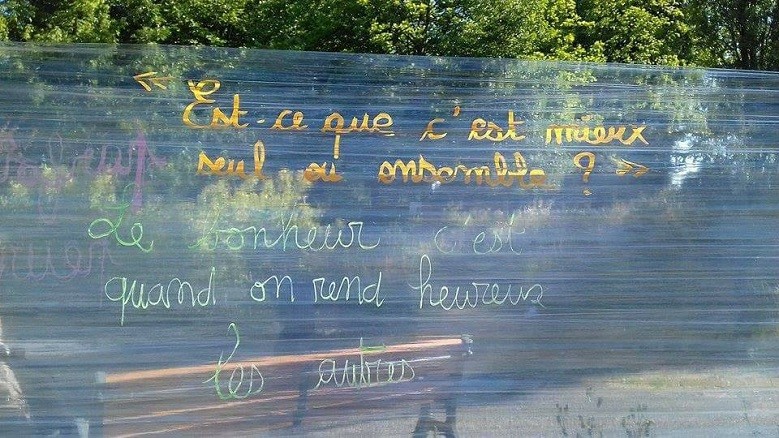 « Est-ce que c'est mieux
seul ou ensemble ? »
Le bonheur c'est
quand on rend heureux
les autres